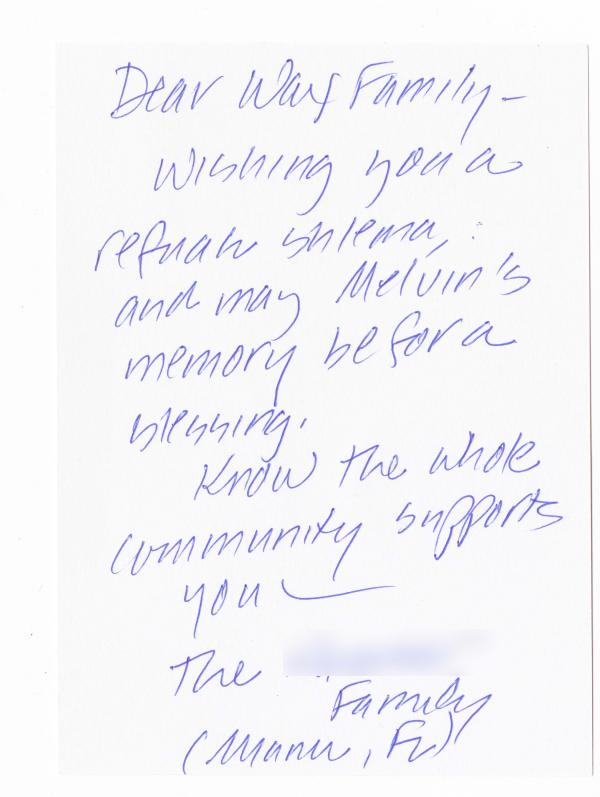 Dear Wax Family -
Wishing you a
refuah shlema,
and may Melvin's
memory be for a
blessing.
Know the whole
community supports
you —
The
Family
(